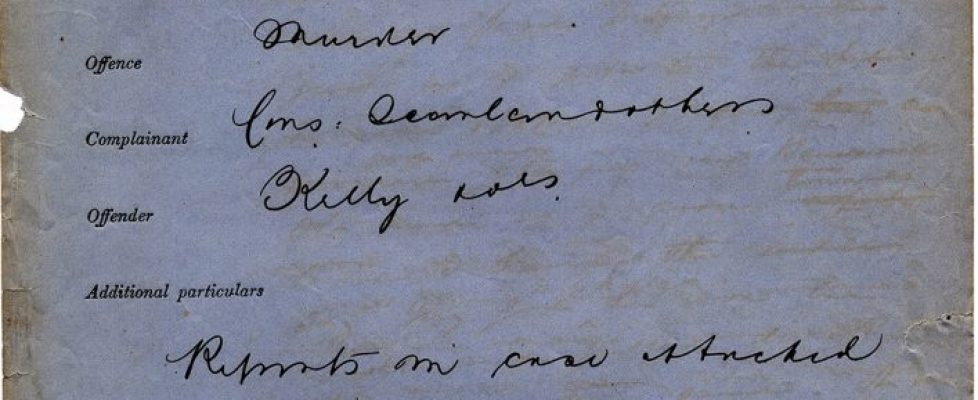 Offence Murder
Complainant Cons: Scanlan and others
Offender Kelly
Additional particulars
Reports in case attached